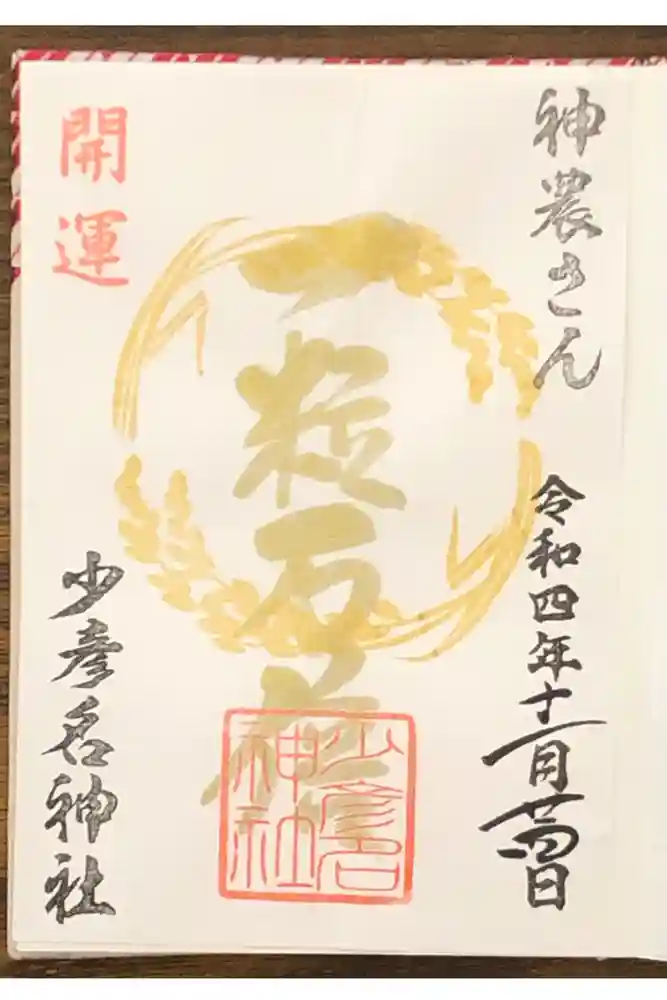 神農さん
令和四年十一月廿四日
一粒万倍
少彦名
神社
開運
少彦名神社